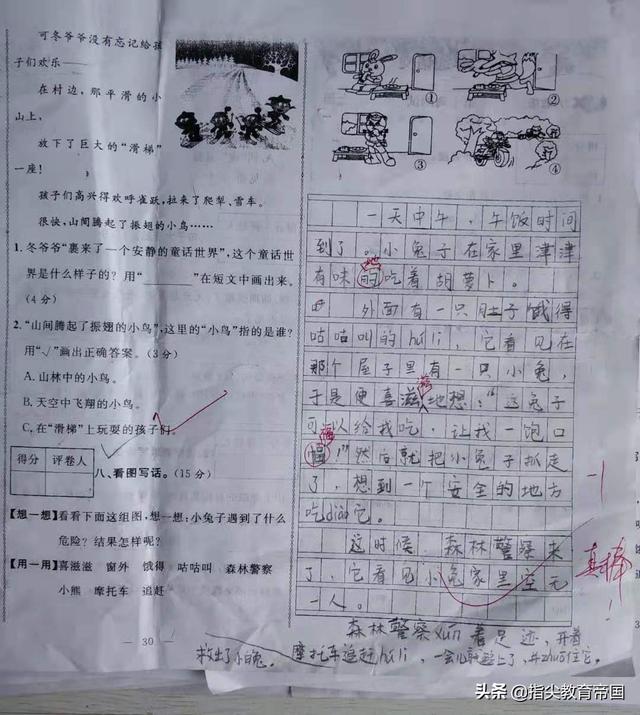 可冬爷爷没有忘记给孩
子们欢乐——
在村边，那平滑的小
山上，
放下了巨大的“滑梯”
一座！
孩子们高兴得欢呼雀跃，拉来了爬犁、雪车。
很快，山间腾起了振翅的小鸟……
1.冬爷爷“裹来了一个安静的童话世界”，这个童话世
界是什么样子的？用“________”在短文中画出来。
(4分)
2.“山间腾起了振翅的小鸟”，这里的“小鸟”指的是谁？
用“√”画出正确答案。(3分)
A.山林中的小鸟。
B.天空中飞翔的小鸟。
C.在“滑梯”上玩耍的孩子们。
得分 评卷人
八、看图写话。(15分)
【想一想】看看下面这组图，想一想：小兔子遇到了什么
危险？结果怎样呢？
【用一用】喜滋滋 窗外 饿得 咕咕叫 森林警察
小熊 摩托车 追赶
30
① ②
③ ④
一天中午，午饭时间
到了。小兔子在家里津津
有味的吃着胡萝卜。
地
外面有一只肚子饿得
咕咕叫的húli，它看见在
那个屋子里有一只小兔，
于是便喜滋地想：“这兔子
滋
可以给我吃，让我一饱口
福
！”然后就把小兔子抓走
了，想到一个安全的地方
吃diào它。
这时候，森林警察来
了，它看见小兔家里空无
一人。
森林警察xún着足迹，开着
摩托车追赶húli，一会儿就赶上了，并zhuā住它。
救出了小白兔。
-1
真棒！
头条 @指尖教育帝国